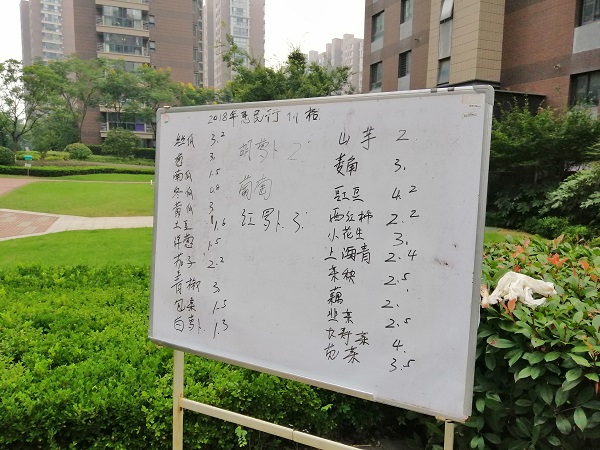 2018年惠民行价格
丝瓜 3.2
南瓜 1.5
冬瓜 0.4
黄瓜 3
土豆 1.6
洋葱 1.5
茄子 2.2
青椒 3
包菜 1.5
白萝卜 1.3
胡萝卜 2
葡萄
红萝卜 3
山芋 2
菱角 3.
豇豆 4.2
西红柿 2.2
小花生 3.
上海青 2.4
茶秧 2.5
藕 2.
韭菜 2.5
大哥菜 4.
苋菜 3.5